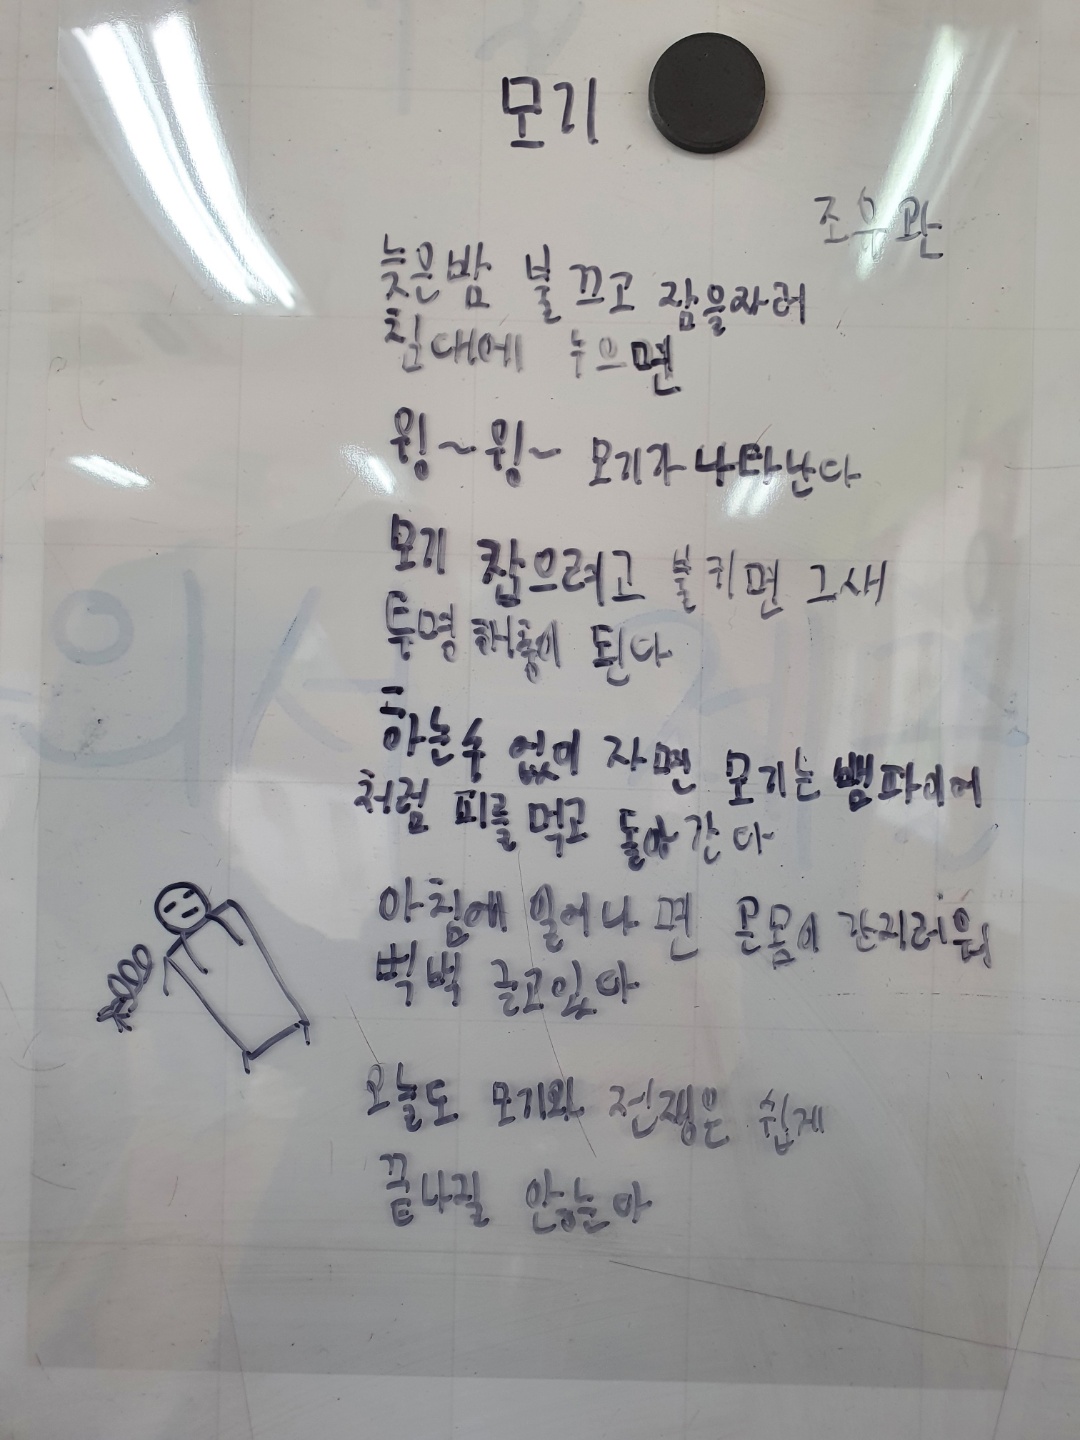 모기
조우관
늦은밤 불 끄고 잠을자러
침대에 누으면
윙~윙~ 모기가 나타난다
모기 잡으려고 불키면 그새
투명 해충이 된다
하는수 없이 자면 모기는 뱀파이어
처럼 피를 먹고 돌아간다
아침에 일어나면 온몸이 간지러워
벅벅 글고있다
오늘도 모기와 전쟁은 쉽게
끝나질 않는다